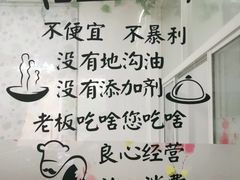 不便宜 不暴利
没有地沟油
没有添加剂
老板吃啥您吃啥
良心经营